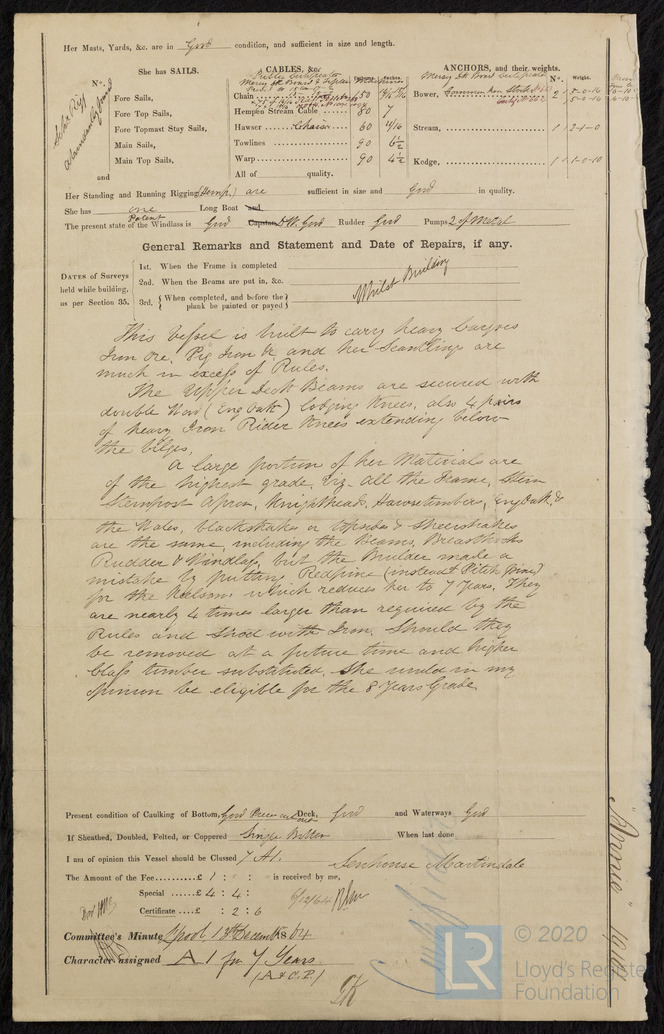 Her Masts, Yards, &c. are in Good condition, and sufficient in size and length.
She has SAILS.
CABLES, &c.
ANCHORS, and their weights.
N°.
Fore Sails,
Fore Top Sails,
Fore Topmast Stay Sails,
Main Sails,
Main Top Sails,
and
Chain
Hempen Stream Cable 80 7
Hawser Chain 60 11/16
Towlines 90 6½
Warp 90 4½
All of quality.
N°. Weight.
Bower, 2
Stream, 1 2-1-0
Kedge, 1 1-0-10
Her Standing and Running Rigging (Hemp) are sufficient in size and Good in quality.
She has one Long Boat and
The present state of the Windlass is Patent Good Capstan Good Rudder Good Pumps 2 of Metal
General Remarks and Statement and Date of Repairs, if any.
DATES of Surveys held while building, as per Section 35.
1st. When the Frame is completed
2nd. When the Beams are put in, &c.
3rd. { When completed, and before the plank be painted or payed }
Whilst Building
This Vessel is built to carry heavy Cargoes
Iron Ore, Pig Iron &c and her Scantlings are
much in excess of Rules.
The Upper Deck Beams are secured with
double Wood (Eng Oak) lodging Knees, also 4 pairs
of heavy Iron Rider Knees extending below
the bilges,
A large portion of her Materials are
of the highest grade, Viz- all the Frame, Stem
Sternpost Apron, Knightheads, Hawsetimbers, Eng Oak, &
the Wales, blackstrakes or topsides & Sheerstrakes
are the same, including the Beams, Breasthooks
Rudder & Windlass, but the Builder made a
mistake by putting Redpine (instead Pitch pine)
for the Kelsons which reduces her to 7 Years. They
are nearly 4 times larger than required by the
Rules and Shod with Iron. Should they
be removed at a future time and higher
class timber substituted, She would in my
opinion be eligible for the 8 Years Grade.
Present condition of Caulking of Bottom, Good Deck, Good and Waterways Good
If Sheathed, Doubled, Felted, or Coppered Single Bottom When last done
I am of opinion this Vessel should be Classed 7 A1. Senhouse Martindale
The Amount of the Fee £ 1 : : is received by me,
Special £ 4 : 4 :
Certificate £ : 2 : 6
6/12/64
Committee's Minute Lpool 13th December 1864
Character assigned A1 for 7 Years
(A & C.P.)
LR
© 2020
Lloyd's Register
Foundation